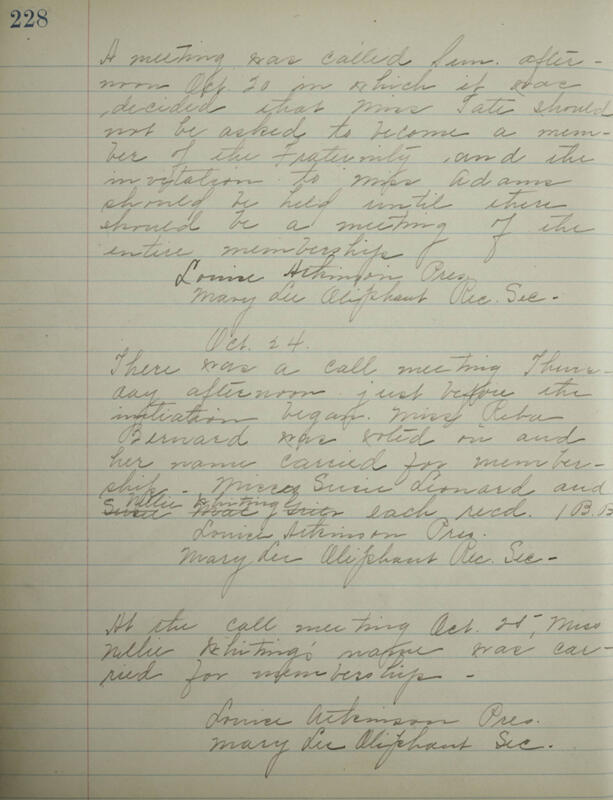 228
A meeting was called Sun. after-
noon Oct 20 in which it was
decided that Miss Tate should
not be asked to become a mem-
ber of the Fraternity, and the
invitation to Miss Adams
should be held until there
should be a meeting of the
entire membership
Louise Atkinson Pres.
Mary Lee Oliphant Rec. Sec -
Oct. 24.
There was a call meeting Thurs-
day afternoon just before the
initiation began. Miss Reba
Bernard was voted on and
her name carried for member-
ship - Misses Susie Leonard and
Nellie Whiting
each recd. 1 B. B
Louise Atkinson Pres.
Mary Lee Oliphant Rec. Sec -
At the call meeting Oct. 25, Miss
Nellie Whiting's name was car-
ried for membership -
Louise Atkinson Pres.
Mary Lee Oliphant Sec.